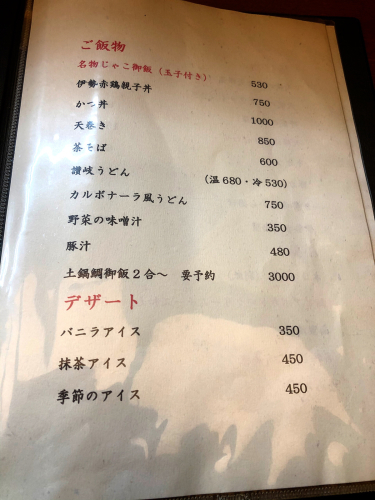 ご飯物
名物じゃこ御飯(玉子付き) 530
伊勢赤鶏親子丼 750
かつ丼 1000
天巻き 850
茶そば 600
讃岐うどん (温680・冷530)
カルボナーラ風うどん 750
野菜の味噌汁 350
豚汁 480
土鍋鯛御飯2合〜 要予約 3000
デザート
バニラアイス 350
抹茶アイス 450
季節のアイス 450